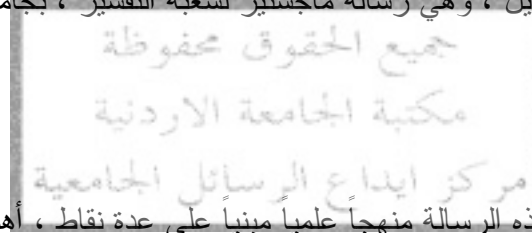 وهي رسالة ماجستير لشعبة التفسير ،
جميع الحقوق محفوظة
مكتبة الجامعة الاردنية
مركز ايداع الرسائل الجامعية
الرسالة منهجاً علمياً مبنياً على عدة نقاط ،